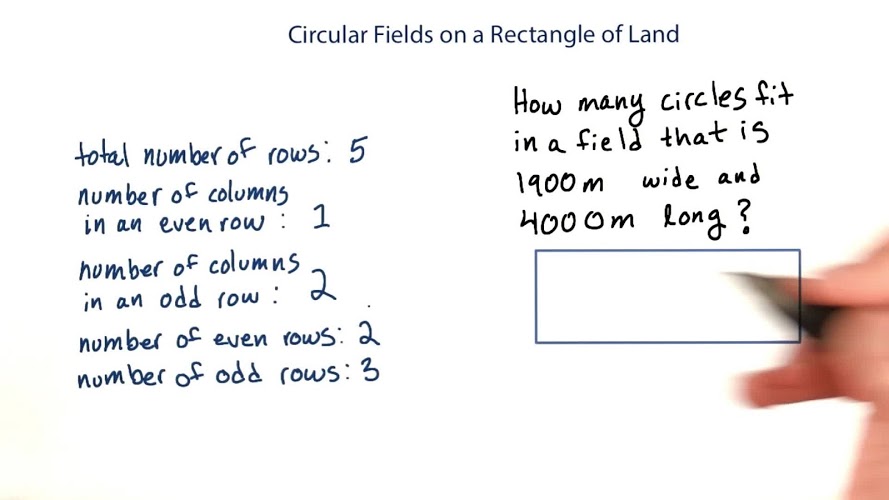 Circular Fields on a Rectangle of Land
total number of rows: 5
number of columns
in an even row : 1
number of columns
in an odd row : 2
number of even rows: 2
number of odd rows: 3
How many circles fit
in a field that is
1900m wide and
4000m long?